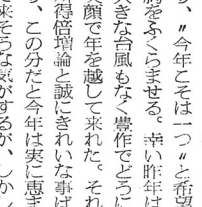 り、〃今年こそは一つ〃と希望
胸をふくらませる。幸い昨年は
大きな台風もなく豊作でどうに
笑顔で年を越して来れた。それ
得倍増論と誠にきれいな事ば
、この分だと今年は実に恵ま
来そうな気がするが、しかし